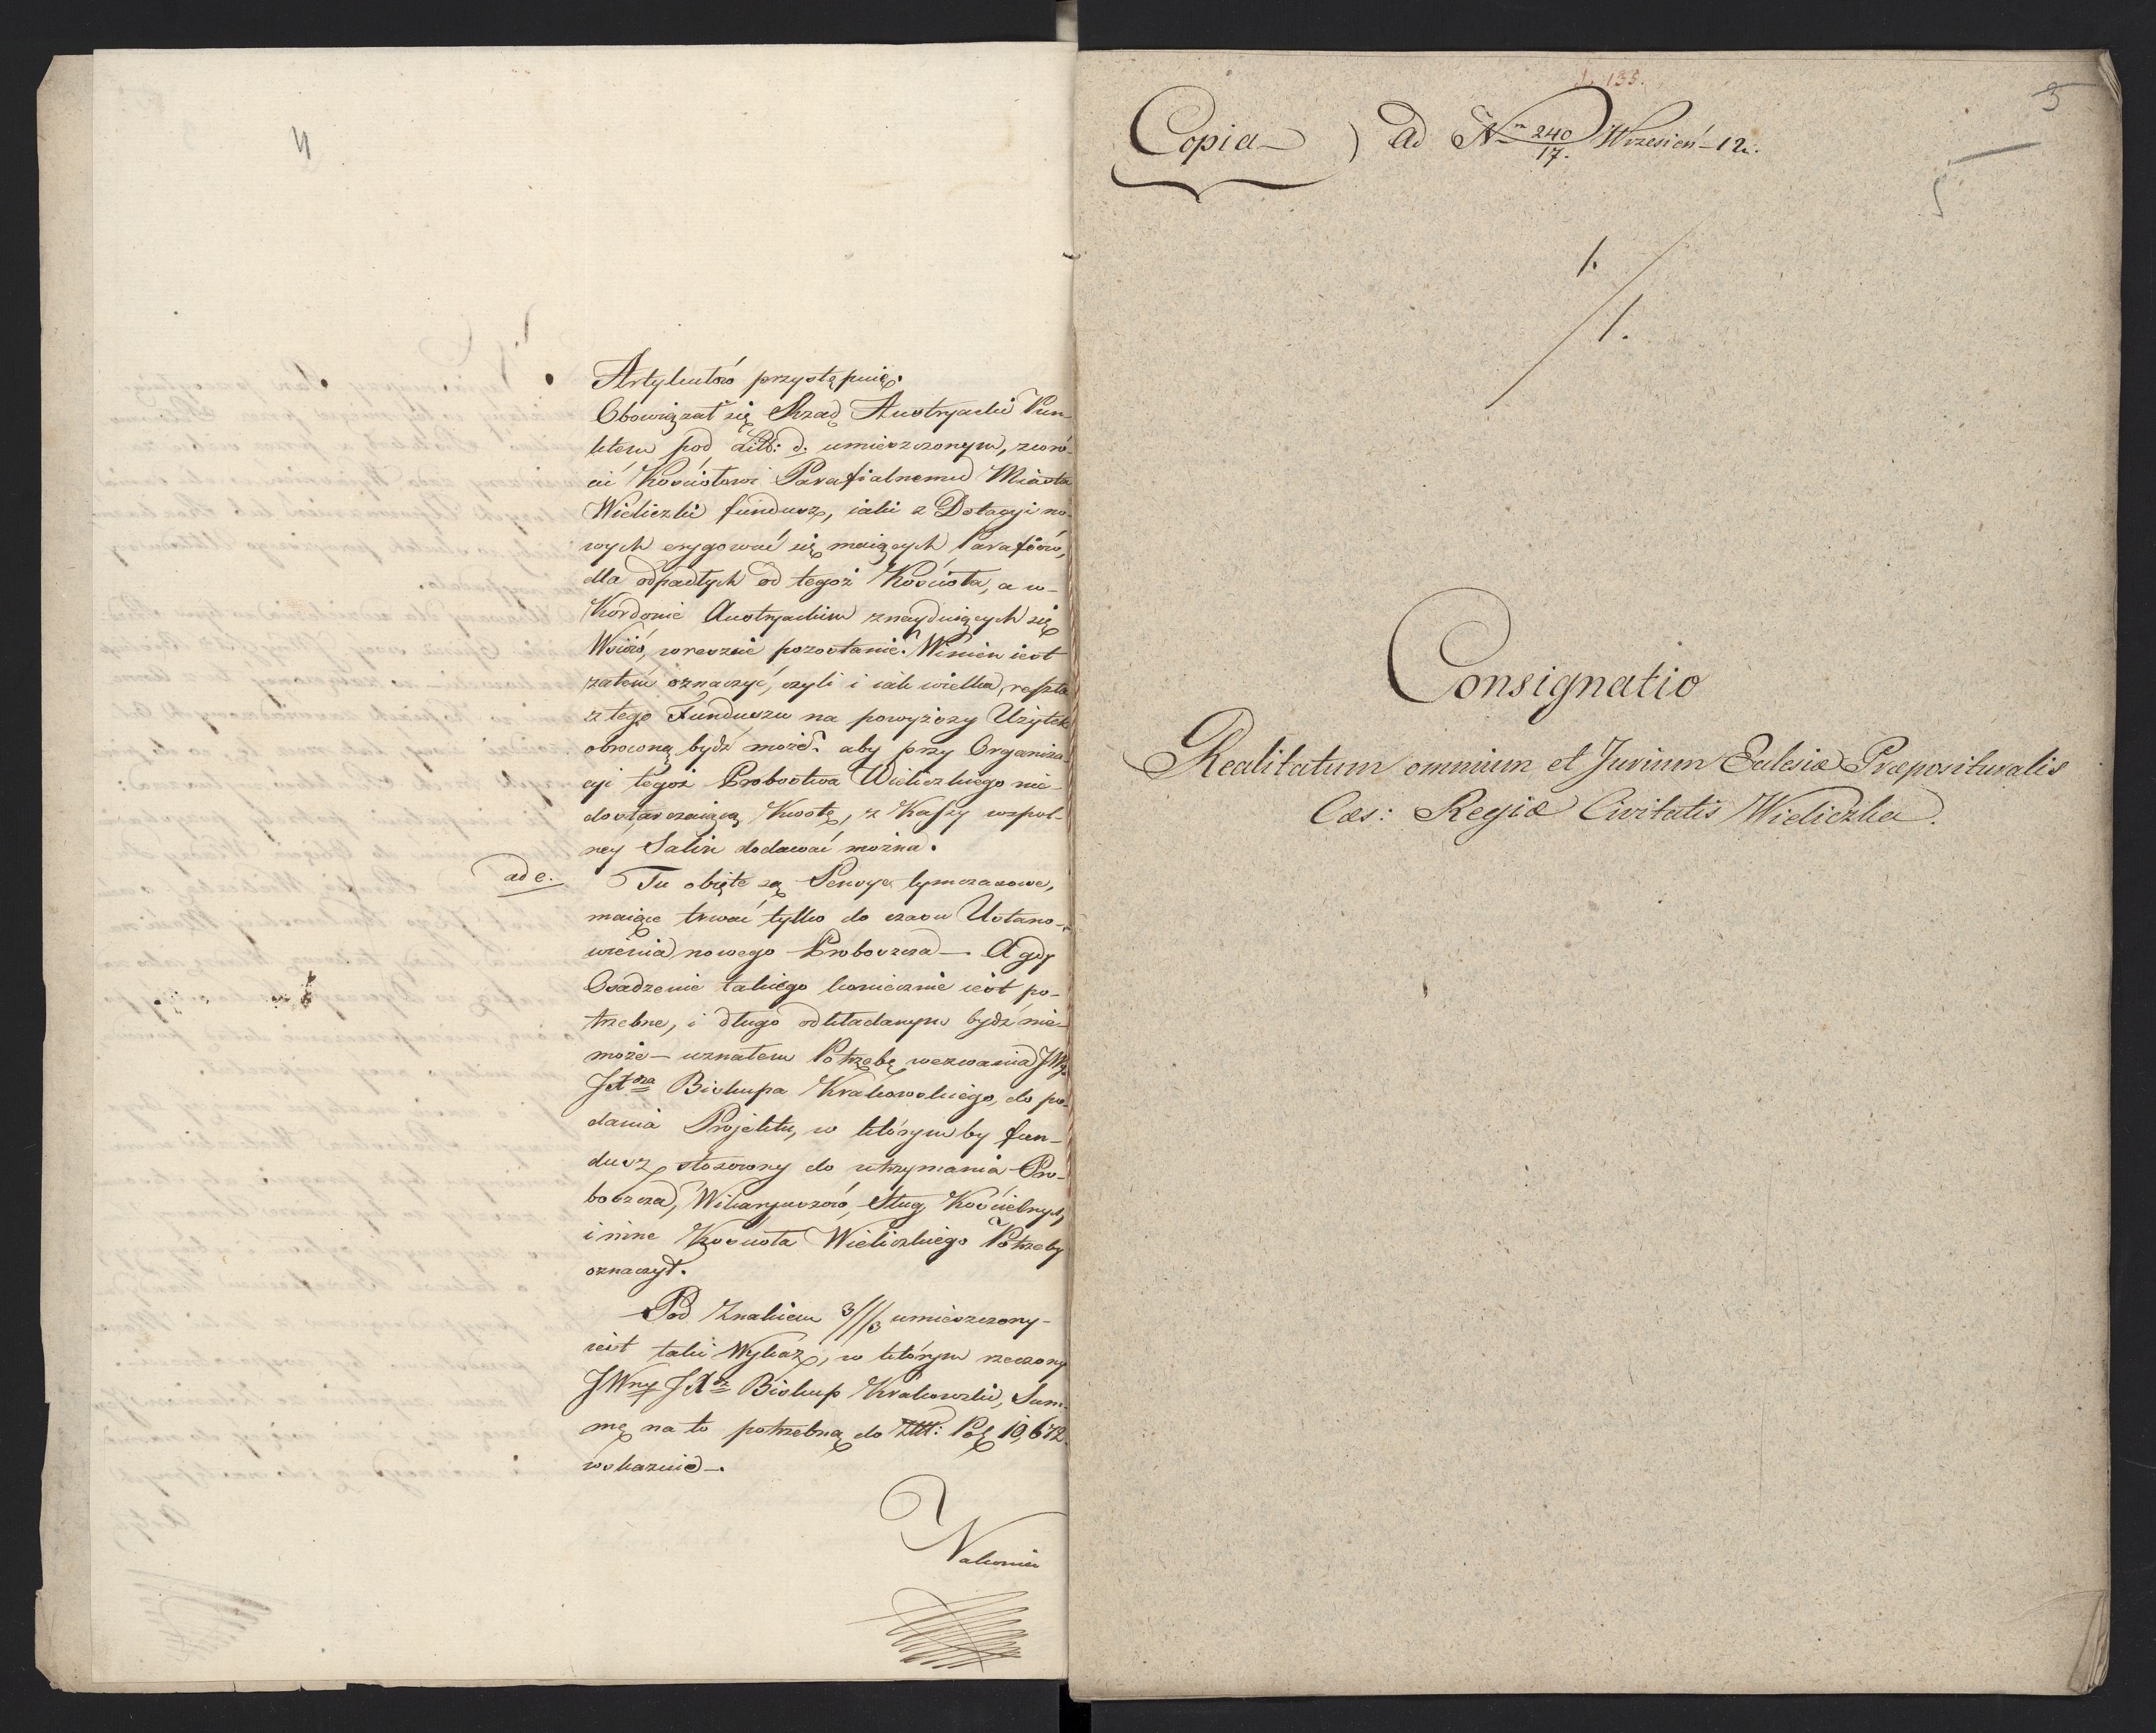 4
Artykułów przystępuię.
Obowiązał się Rząd Austryacki Pun-
ktem pod Litt: d. umieszczonym, zwró-
cić Kościołowi Parafialnemu Miasta
Wieliczki fundusz, iaki z Dotacyi no-
wych erygować się maiących Parafiów,
dla odpadłych od tegoż Kościoła, a w-
Kordonie Austryackim znayduiących się
Wsiów, wreszcie pozostanie. Winien iest
zatem oznaczyć, czyli i iak wielka reszta
z tego Funduszu na powyższy Użytek
obroconą bydź może? aby przy Organiza-
cyi tegoż Probostwa Wielickiego nie-
dostarczaiącą Kwotę, z Kassy wspol-
ney Salin dodawać można.
ad e. Tu obięte są Pensye tymczasowe,
maiące trwać tylko do czasu Ustano-
wienia nowego Proboszcza —. A gdy
Osadzenie takiego koniecznie iest po-
trzebne, i długo odkładanym bydź nie-
może — uznałem Potrzebę wezwania JWgo
JXdza Biskupa Krakowskiego, do po-
dania Projektu, w którym by fun-
dusz stosowny do utrzymania Pro-
boszcza, Wikaryuszów, Sług Kościelnych,
i inne Kościoła Wielickiego Potrzeby
oznaczył.
Pod Znakiem 3///3 umieszczony-
iest taki Wykaz, w którym rzeczony
JWny JXdz Biskup Krakowski, Sum-
mę na to potrzebną do Złt: Pol 10,672.
wskazuie —.
Nakonier
1. 135.
Copia ) ad Nrm 240/17. Wrzesień - 12.
3
5
1.
/
1.
Consignatio
Realitatum omnium et Jurium Eclesiæ Præposituralis
Cæs: Regiæ Civitatis Wieliczka.